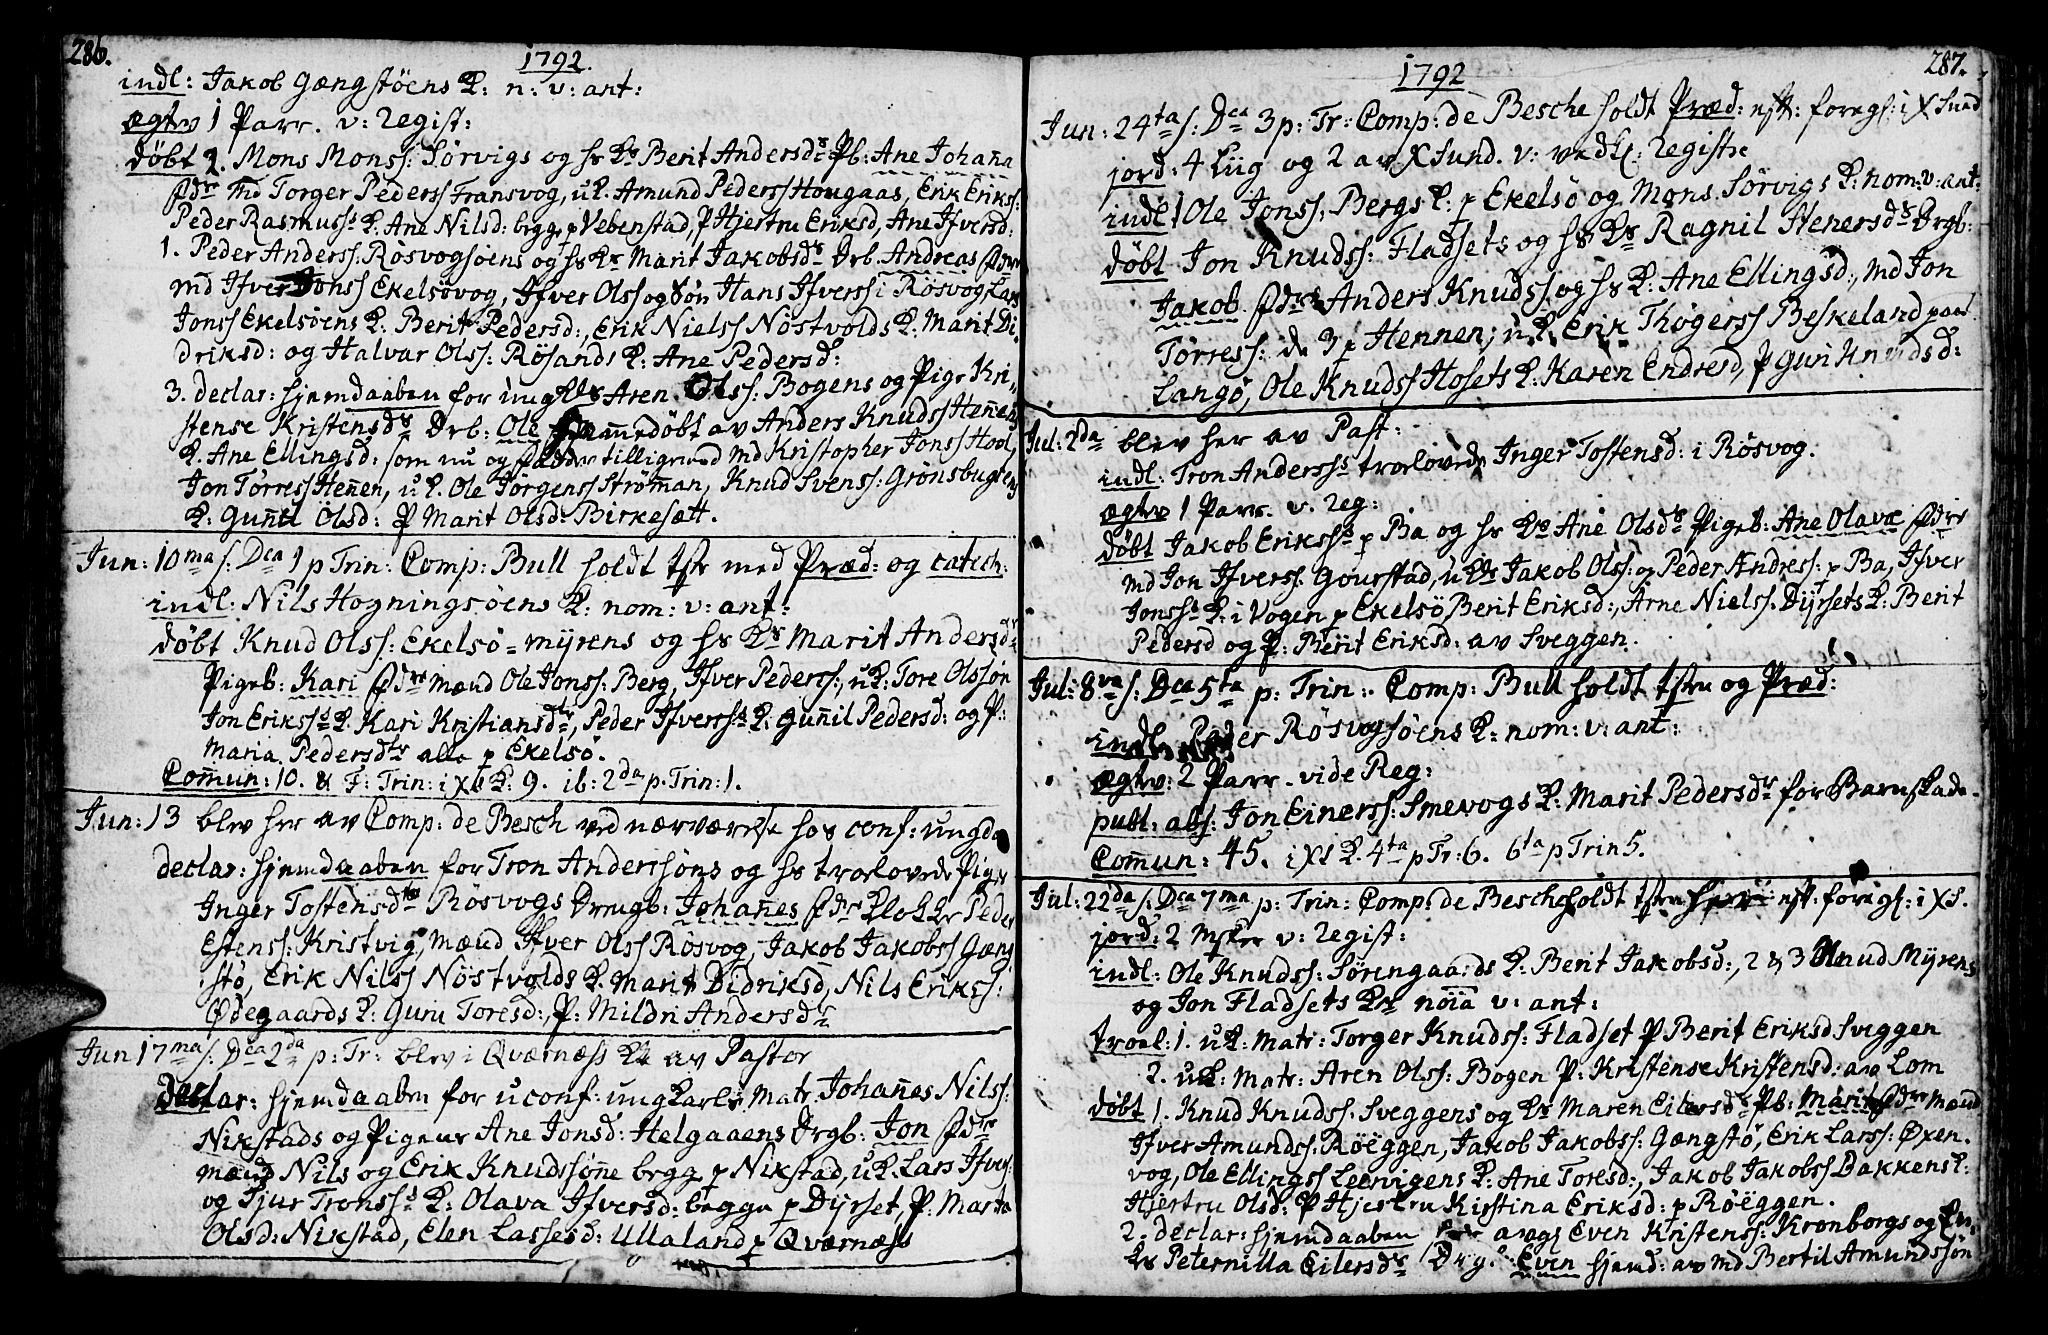 286.
1792.
indl: Jakob Gængstöens K: n: v: ant:
ægtv 1 Parr. v: Regist:
döbt 2. Mons Monss: Sörvigs og hs Ks Berit Andersdr Pb: Ane Johaña
Fdre md Torger Pederss Fransvog, uK. Amund Pederss Hougaas, Erik Erikss:
Peder Rasmusss K. Ane Nilsd: begge p Vebenstad, P Hjertru Eriksd, Ane Ifversd:
1. Peder Anderss: Rösvogsöens og hs Ks Marit Jakobsdr Drb. Andreas Fdre
md Ifver Jonss Ekelsövog, Ifver Olss og Sön Hans Iferss i Rösvog, Lars
Jonss Ekelsöens K: Berit Pedersd:, Erik Nielss Nöstvolds K: Marit Di-
driksd: og Halvar Olss: Rösands K: Ane Pedersd:
3. declar: hjemdaaben for ungKls Aren Olss: Bogens og Pige Kri-
stense Kristensdr Drb: Ole hjemmedöbt av Anders Knudss Heñens
K. Ane Ellingsd: som nu og Fadder tilligemed md Kristopher Jonss Hool,
Jon Törress Heñen, uK. Ole Jörgenss Ströman, Knud Svenss: Grönsbugtens
K: Guñil Olsd: P Marit Olsd: Birkesætt.
Jun: 10ma s: Dca 1 p Trin: Comp: Bull holdt tstr med Præd: og catech:
indl: Nils Hogningsöens K: nom: v: ant:
döbt Knud Olss: Ekelsö=mÿrens og hs Ks Marit Andersdr
Pigeb: Kari Fdre mænd Ole Jonss: Berg, Ifver Pederss:, uK: Tore Olssön
Jon Erikss K. Kari Kristiansdtr, Peder Iferss K: Guñil Pedersd: og P:
Maria Pedersdtr alle p Ekelsö.
Comun: 10. & F: Trin: i XI K: 9. ib: 2da p. Trin: 1.
Jun: 13 blev her av Comp: de Besch ved nærværelse hos conf: ungd
declar: hjemdaaben for Tron Anderssöns og hs trolovede Piges
Inger Tostensdtrs Rösvogs Drengb: Johañes Fdre Klokker Peder
Estenss: Kristvig, mænd Ifver Olss Rösvog, Jakob Jakobss Gæng
stö, Erik Nilss Nöstvolds K: Marit Didriksd, Nils Erikss:
Ödegaards K: Guru Toresd:, P: Mildri Andersdr
Jun 17ma s: Dca 2da p: Tr: blev i Qværness K av Pastor
declar: hjemdaaben for uconf: ungkarls matr. Johañes Nilss:
Nikstads og Pigeur Ane Jonsd: Helgaaens Drgb: Jon Fdre
mænd Nils og Erik Knudssöñe begge p Nikstad, uK: Lars Ifvers:
og Sjur Tronss K: Olava Ifversd: begge p Dÿrset, P: Marta
Olsd: Nikstad, Elen Lassesd: Ullaland p Qværness
287.
1792
Jun: 24ta s: Dca 3 p: Tr: Comp: de Besche holdt Præd: eft: foregs: i XSund
jord: 4 Liig og 2 av XSund. v: vedk: Registre
indl: 1 Ole Jonss: Bergs K: p Ekelsö og Mons Sörvigs K: nom: v: ant:
döbt Jon Knudss: Fladsets og hs Ks Ragnil Stenersdr Drgb:
Jakob Fdre Anders Knudss og hs K: Ane Ellingsd:, md Jon
Törress: de 3 p Hennen; u.K. Erik Thögerss Beskeland paa
Langö, Ole Knudss Hosets K: Karen Endresd, P Guri Knudsd:
Jul: 2da blev her av Past:
indl: Tron Anderss troelovede Inger Tostensd: i Rösvog.
ægtv 1 Parr. v. Reg:
döbt Jakob Erikss p Ba og hs Ks Ane Olsdr Pigeb: Ane Olava Fdre
md Jon Ifverss: Gourstad, uKls Jakob Olss: og Peder Andress: p Ba, Ifver
Jonss K: i Vogen p Ekelsö, Berit Eriksd:, Arne Nielss. Dÿrsets K: Berit
Pedersd og P: Berit Eriksd: av Sveggen.
Jul: 8va s: Dca 5ta p: Trin: Comp: Bull holdt tstn og Præd:
indl: Peder Rösvogsöens K: nom: v: ant:
ægtv: 2 Parr. vide Reg:
publ: abs: Jon Einerss: Smevogs K: Marit Pedersdr for Barnskade.
Comun: 45. i XI K. 4ta p Tr: 6. 6ta p Trin 5.
Jul: 22da s: Dca 7ma p: Trin: Comp de Besch holdt tstn her eft: foregs: i XS.
jord: 2 Msker v: Regist:
indl: Ole Knudss: Sörengaards K: Berit Jakobsd:, 2 & 3 Knud Mÿrens
og Jon Fladsets Kr nöia v: ant:
troel: 1. uK: matr: Torger Knudss: Fladset P Berit Eriksd Sveggen
2. uK: matr: Aren Olss: Bogen P: Kristense Kristensd: av Lom
döbt 1. Knud Knudss: Sveggens og Ks Maren Eilersdr Pb: Marit Fdre mænd
Ifver Amundss: Röeggen, Jakob Jakobss: Gængstö, Erik Larss: Öxen-
vog, Ole Ellingss Leervigens K: Ane Toresd:, Jakob Jakobss Bakkens K:
Hjertru Olsd: P Hjertru Kirstina Eriksd: p Röeggen.
2. declar: hjemdaaben for avgs Even Kristenss: Kronborgs og En-
ks Peternilla Eilersdr Drg: Even hjemd: av md Bertil Amundssön